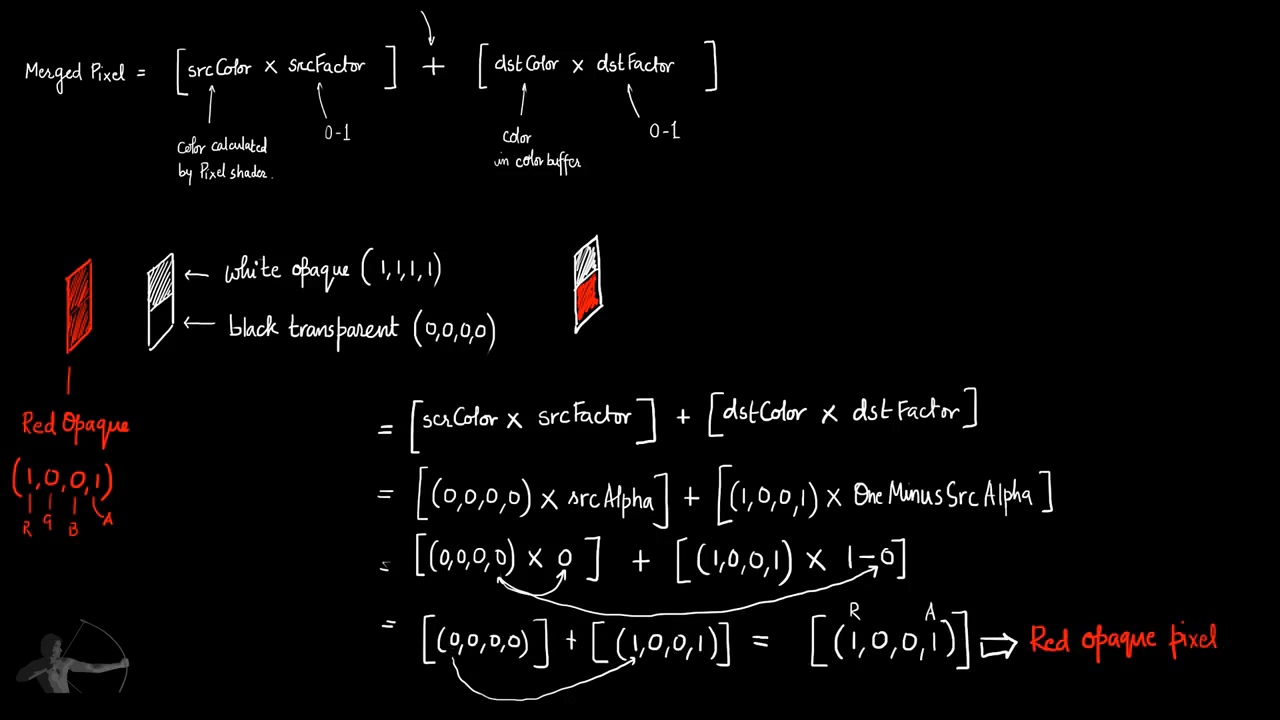 Merged Pixel = [srcColor × srcFactor] + [dstColor × dstFactor]
color calculated
by Pixel shader.
0-1
color
in color buffer
0-1
white opaque (1,1,1,1)
black transparent (0,0,0,0)
Red Opaque
(1,0,0,1)
R G B A
= [scrColor × srcFactor] + [dstColor × dstFactor]
= [(0,0,0,0) × srcAlpha] + [(1,0,0,1) × OneMinusSrcAlpha]
= [(0,0,0,0) × 0] + [(1,0,0,1) × 1-0]
R A
= [(0,0,0,0)] + [(1,0,0,1)] = [(1,0,0,1)] ⇒ Red opaque pixel